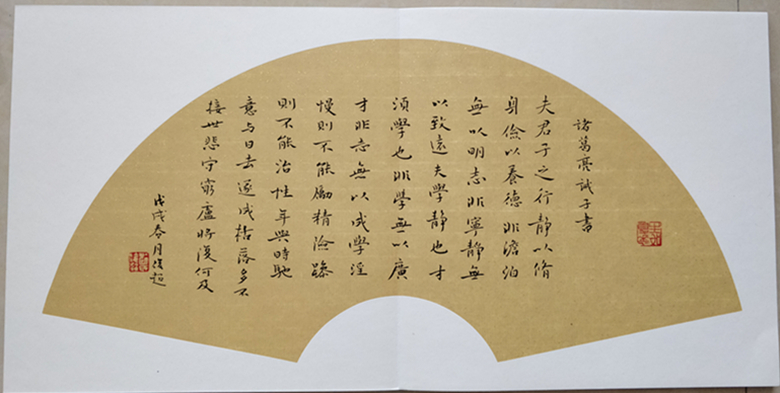 諸葛亮誡子書
夫君子之行静以脩
身儉以養德非澹泊
無以明志非寧静無
以致遠夫學静也才
須學也非學無以廣
才非志無以成學淫
慢則不能勵精險躁
則不能治性年與時馳
意与日去遂成枯落多不
接世悲守窮廬將復何及
戊戌春月